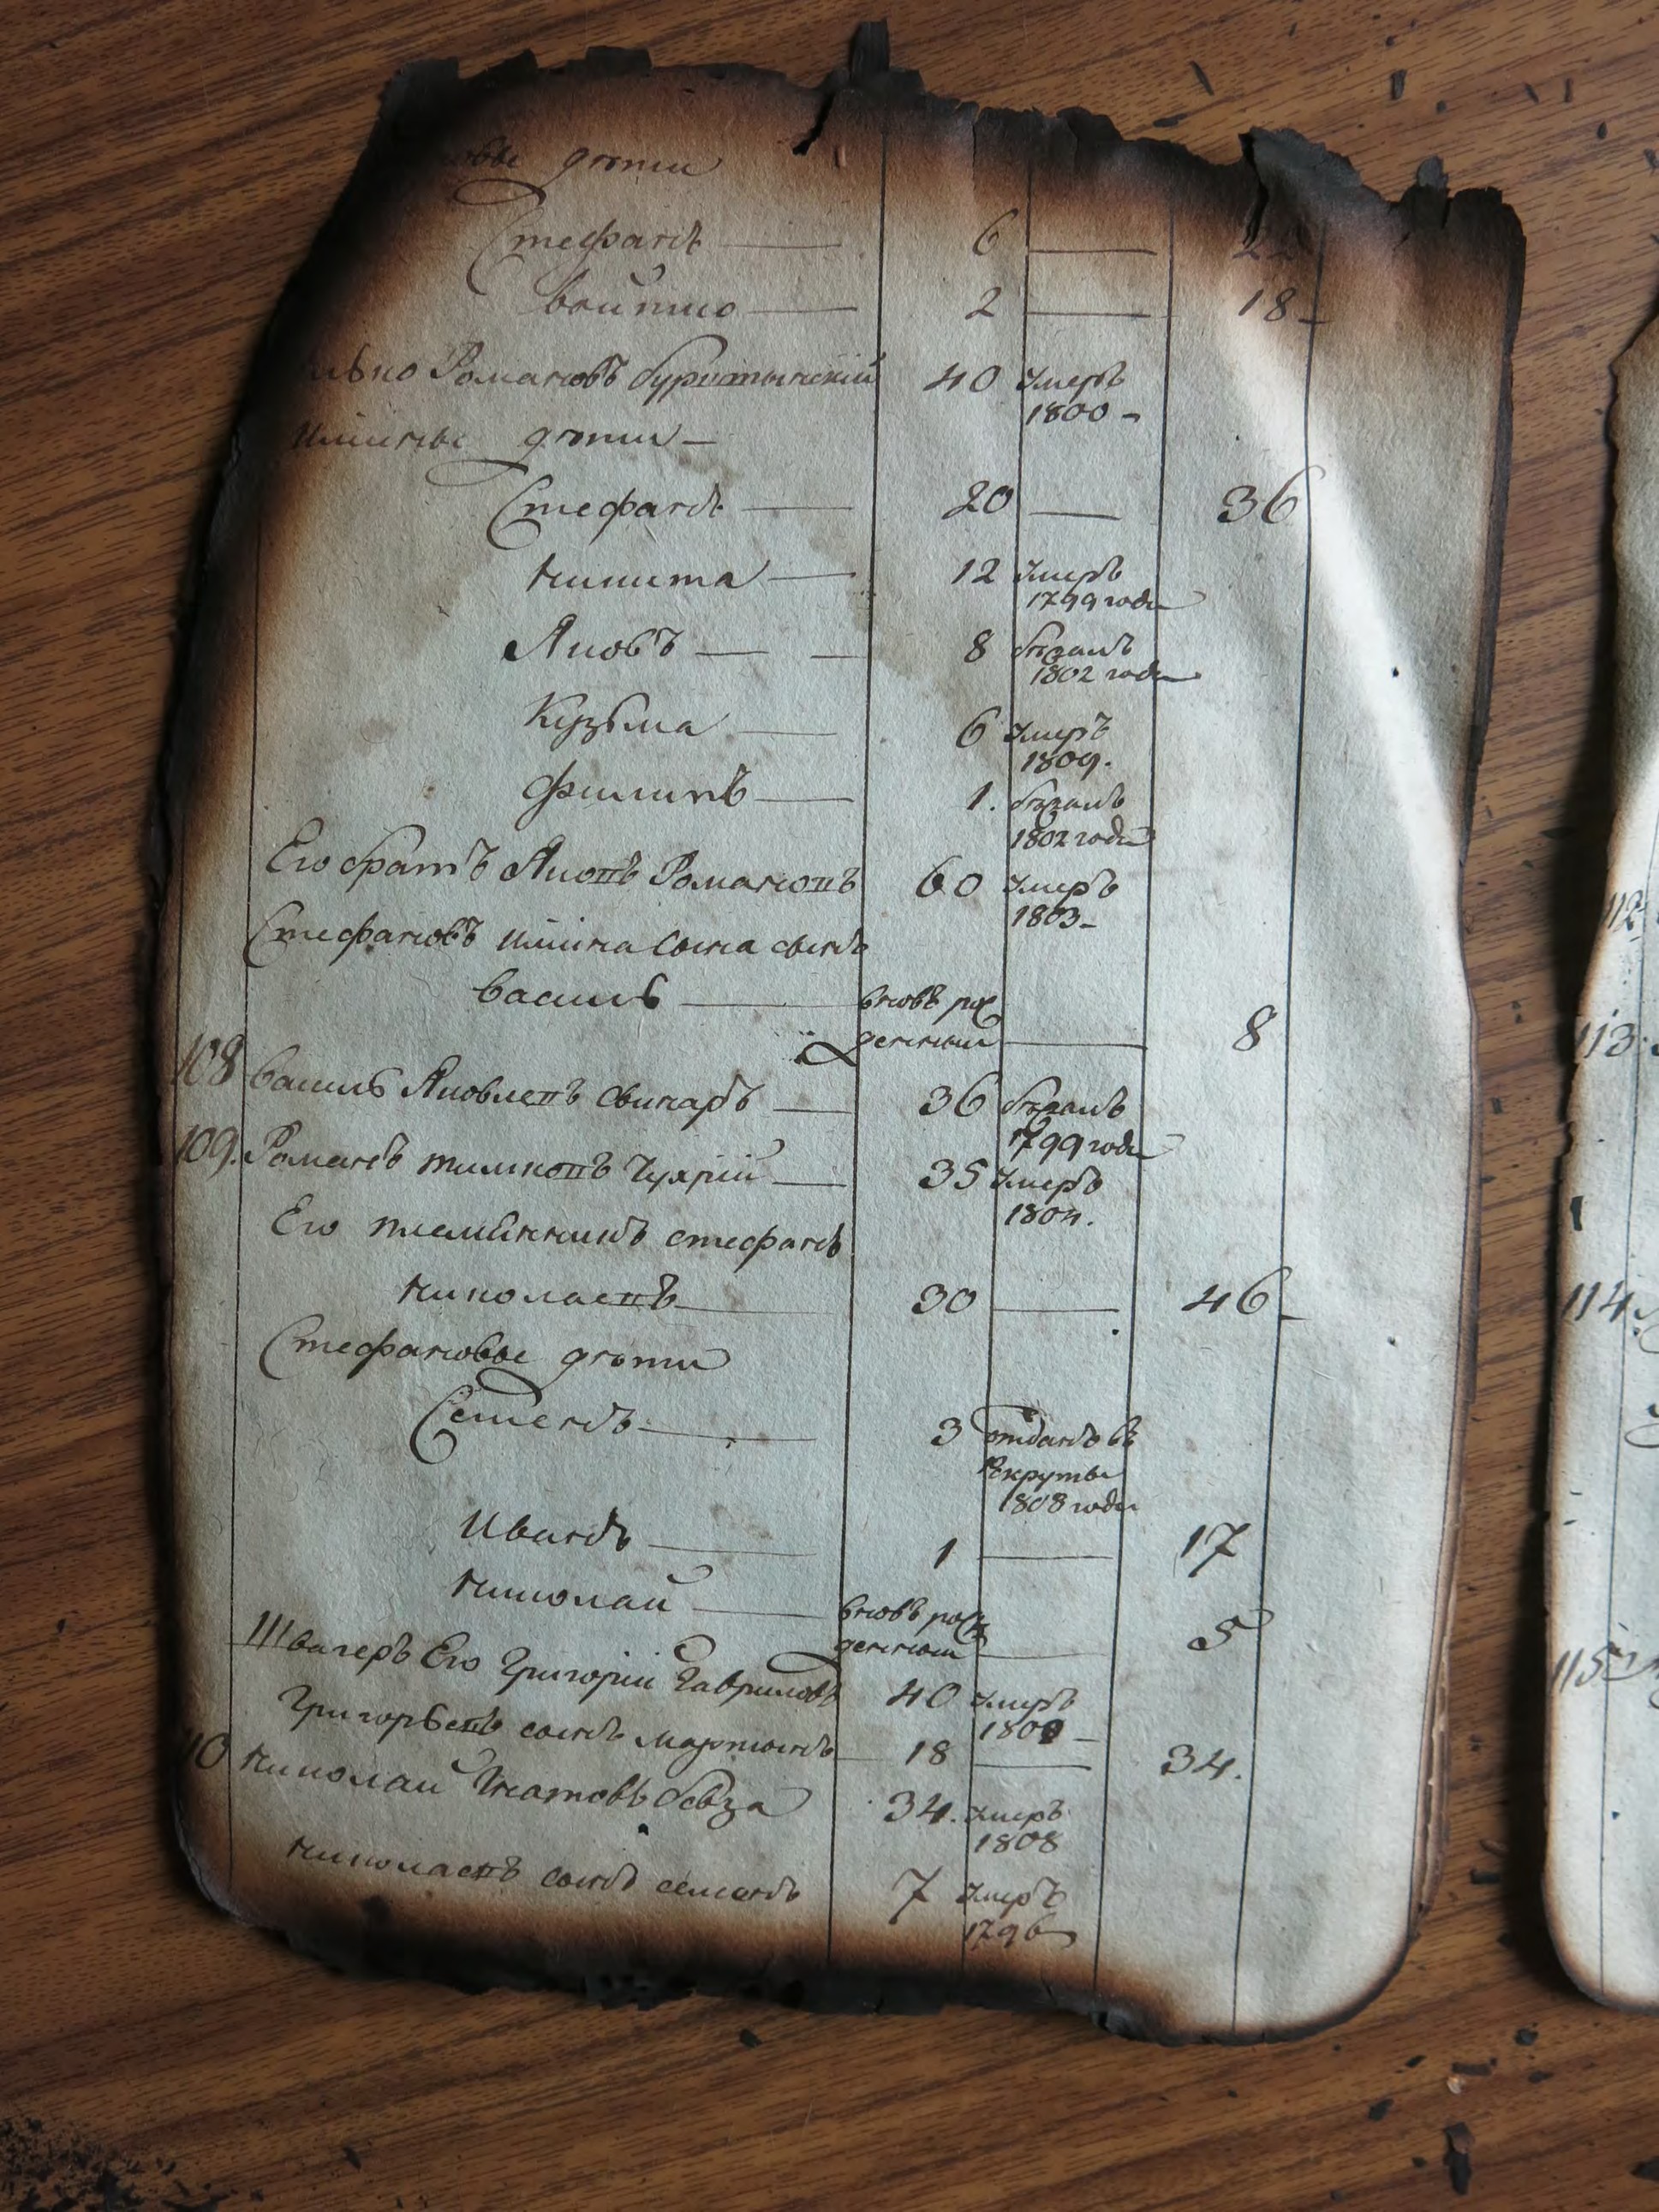 дѣти
Стефанъ — 6 — 22
войтко — 2 — 18 –
Романовъ бурштынскій 40 Умеръ
1800 –
Ильины дѣти –
Стефанъ — 20 — 36
Никита — 12 Умеръ
1799 года
Яковъ — — 8 бѣжалъ
1802 года
Кузьма — 6 Умеръ
1809.
Филипъ — 1. бѣжалъ
1802 года
Его братъ Яковъ Романовъ 60 Умеръ
1803 –
Стефановъ Ильина сына сынъ
василь — вновь рож
денный — 8
108 василь Яковлевъ свинаръ — 36 бѣжалъ
1799 года
109. Романъ тимковъ Чухрій — 35 Умеръ
1804.
Его племѣнникъ стефанъ
Николаевъ — 30 — 46 –
Стефановы дѣти
Семенъ — 3 отданъ въ
Рекруты
1808 года
Иванъ — 1 — 17
Николай — вновь рож
денный — 5
Швагеръ Его Григорій Гавриловъ 40 Умеръ
1800 –
Григорьевъ сынъ Мартынъ — 18 — 34.
10 Николай Игнатовъ 34. Умеръ
1808
Николаевъ сынъ семенъ 7 Умеръ
1796
112
113
114
115